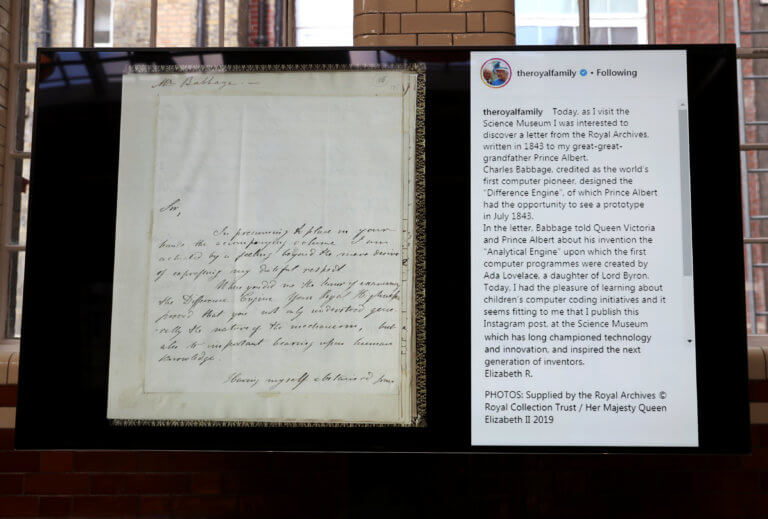 Mr Babbage. —
Sir,
In presuming to place in your
hands the accompanying volume I am
actuated by a feeling beyond the mere desire
of expressing my dutiful respect
When you did me the honor of examining
the Difference Engine Your Royal Highness
proved that you not only understood gene-
rally the nature of the mechanism, but
also its important bearing upon human
knowledge.
Having myself abstained from
theroyalfamily • Following
theroyalfamily Today, as I visit the
Science Museum I was interested to
discover a letter from the Royal Archives,
written in 1843 to my great-great-
grandfather Prince Albert.
Charles Babbage, credited as the world's
first computer pioneer, designed the
"Difference Engine", of which Prince Albert
had the opportunity to see a prototype
in July 1843.
In the letter, Babbage told Queen Victoria
and Prince Albert about his invention the
"Analytical Engine" upon which the first
computer programmes were created by
Ada Lovelace, a daughter of Lord Byron.
Today, I had the pleasure of learning about
children's computer coding initiatives and it
seems fitting to me that I publish this
Instagram post, at the Science Museum
which has long championed technology
and innovation, and inspired the next
generation of inventors.
Elizabeth R.
PHOTOS: Supplied by the Royal Archives ©
Royal Collection Trust / Her Majesty Queen
Elizabeth II 2019